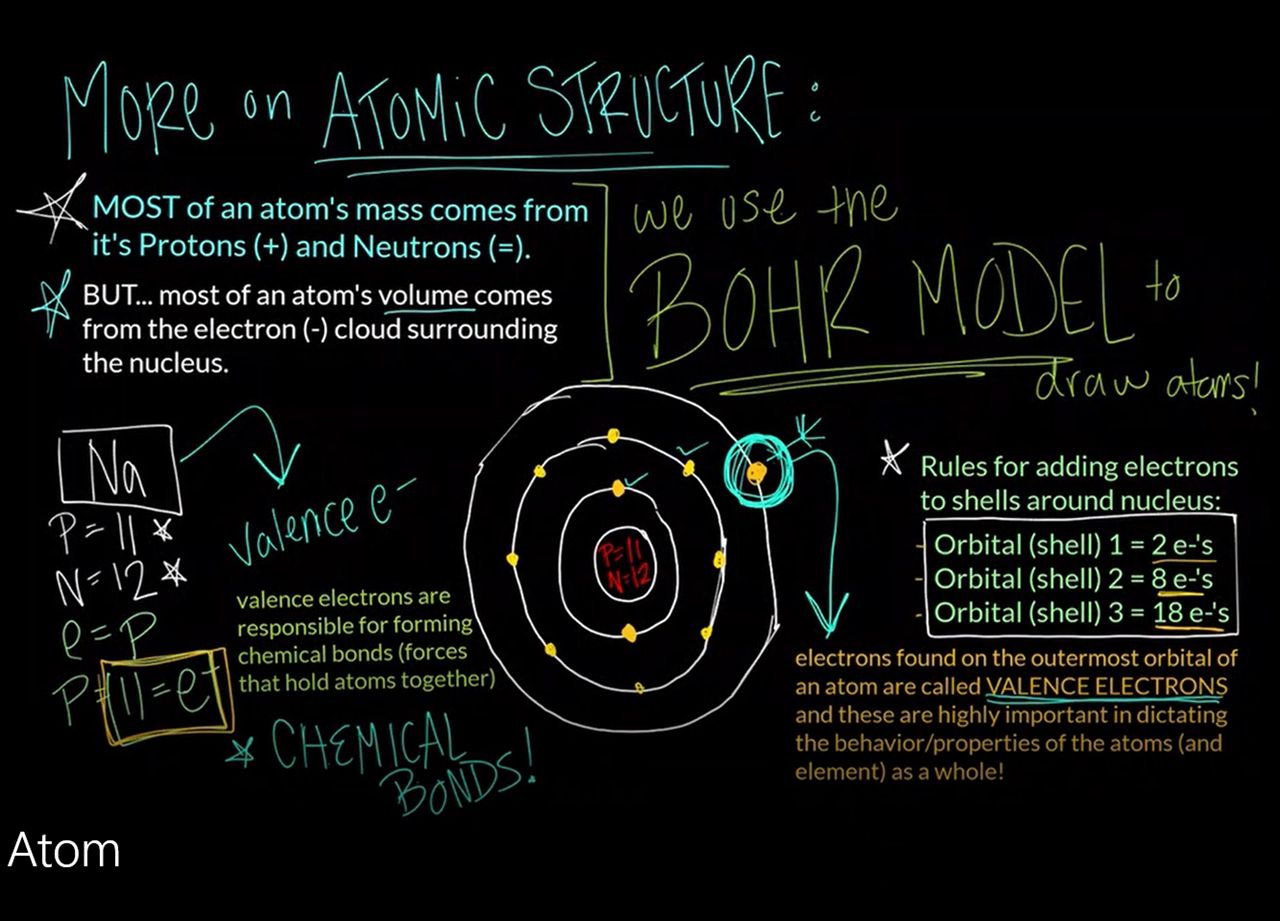 MORE on ATOMIC STRUCTURE:
MOST of an atom's mass comes from
it's Protons (+) and Neutrons (=).
BUT... most of an atom's volume comes
from the electron (-) cloud surrounding
the nucleus.
we use the
BOHR MODEL to
draw atoms!
Na
P=11
N=12
e=P
P=11=e-
Valence e-
valence electrons are
responsible for forming
chemical bonds (forces
that hold atoms together)
CHEMICAL
BONDS!
P=11
N=12
Rules for adding electrons
to shells around nucleus:
- Orbital (shell) 1 = 2 e-'s
- Orbital (shell) 2 = 8 e-'s
- Orbital (shell) 3 = 18 e-'s
electrons found on the outermost orbital of
an atom are called VALENCE ELECTRONS
and these are highly important in dictating
the behavior/properties of the atoms (and
element) as a whole!
Atom